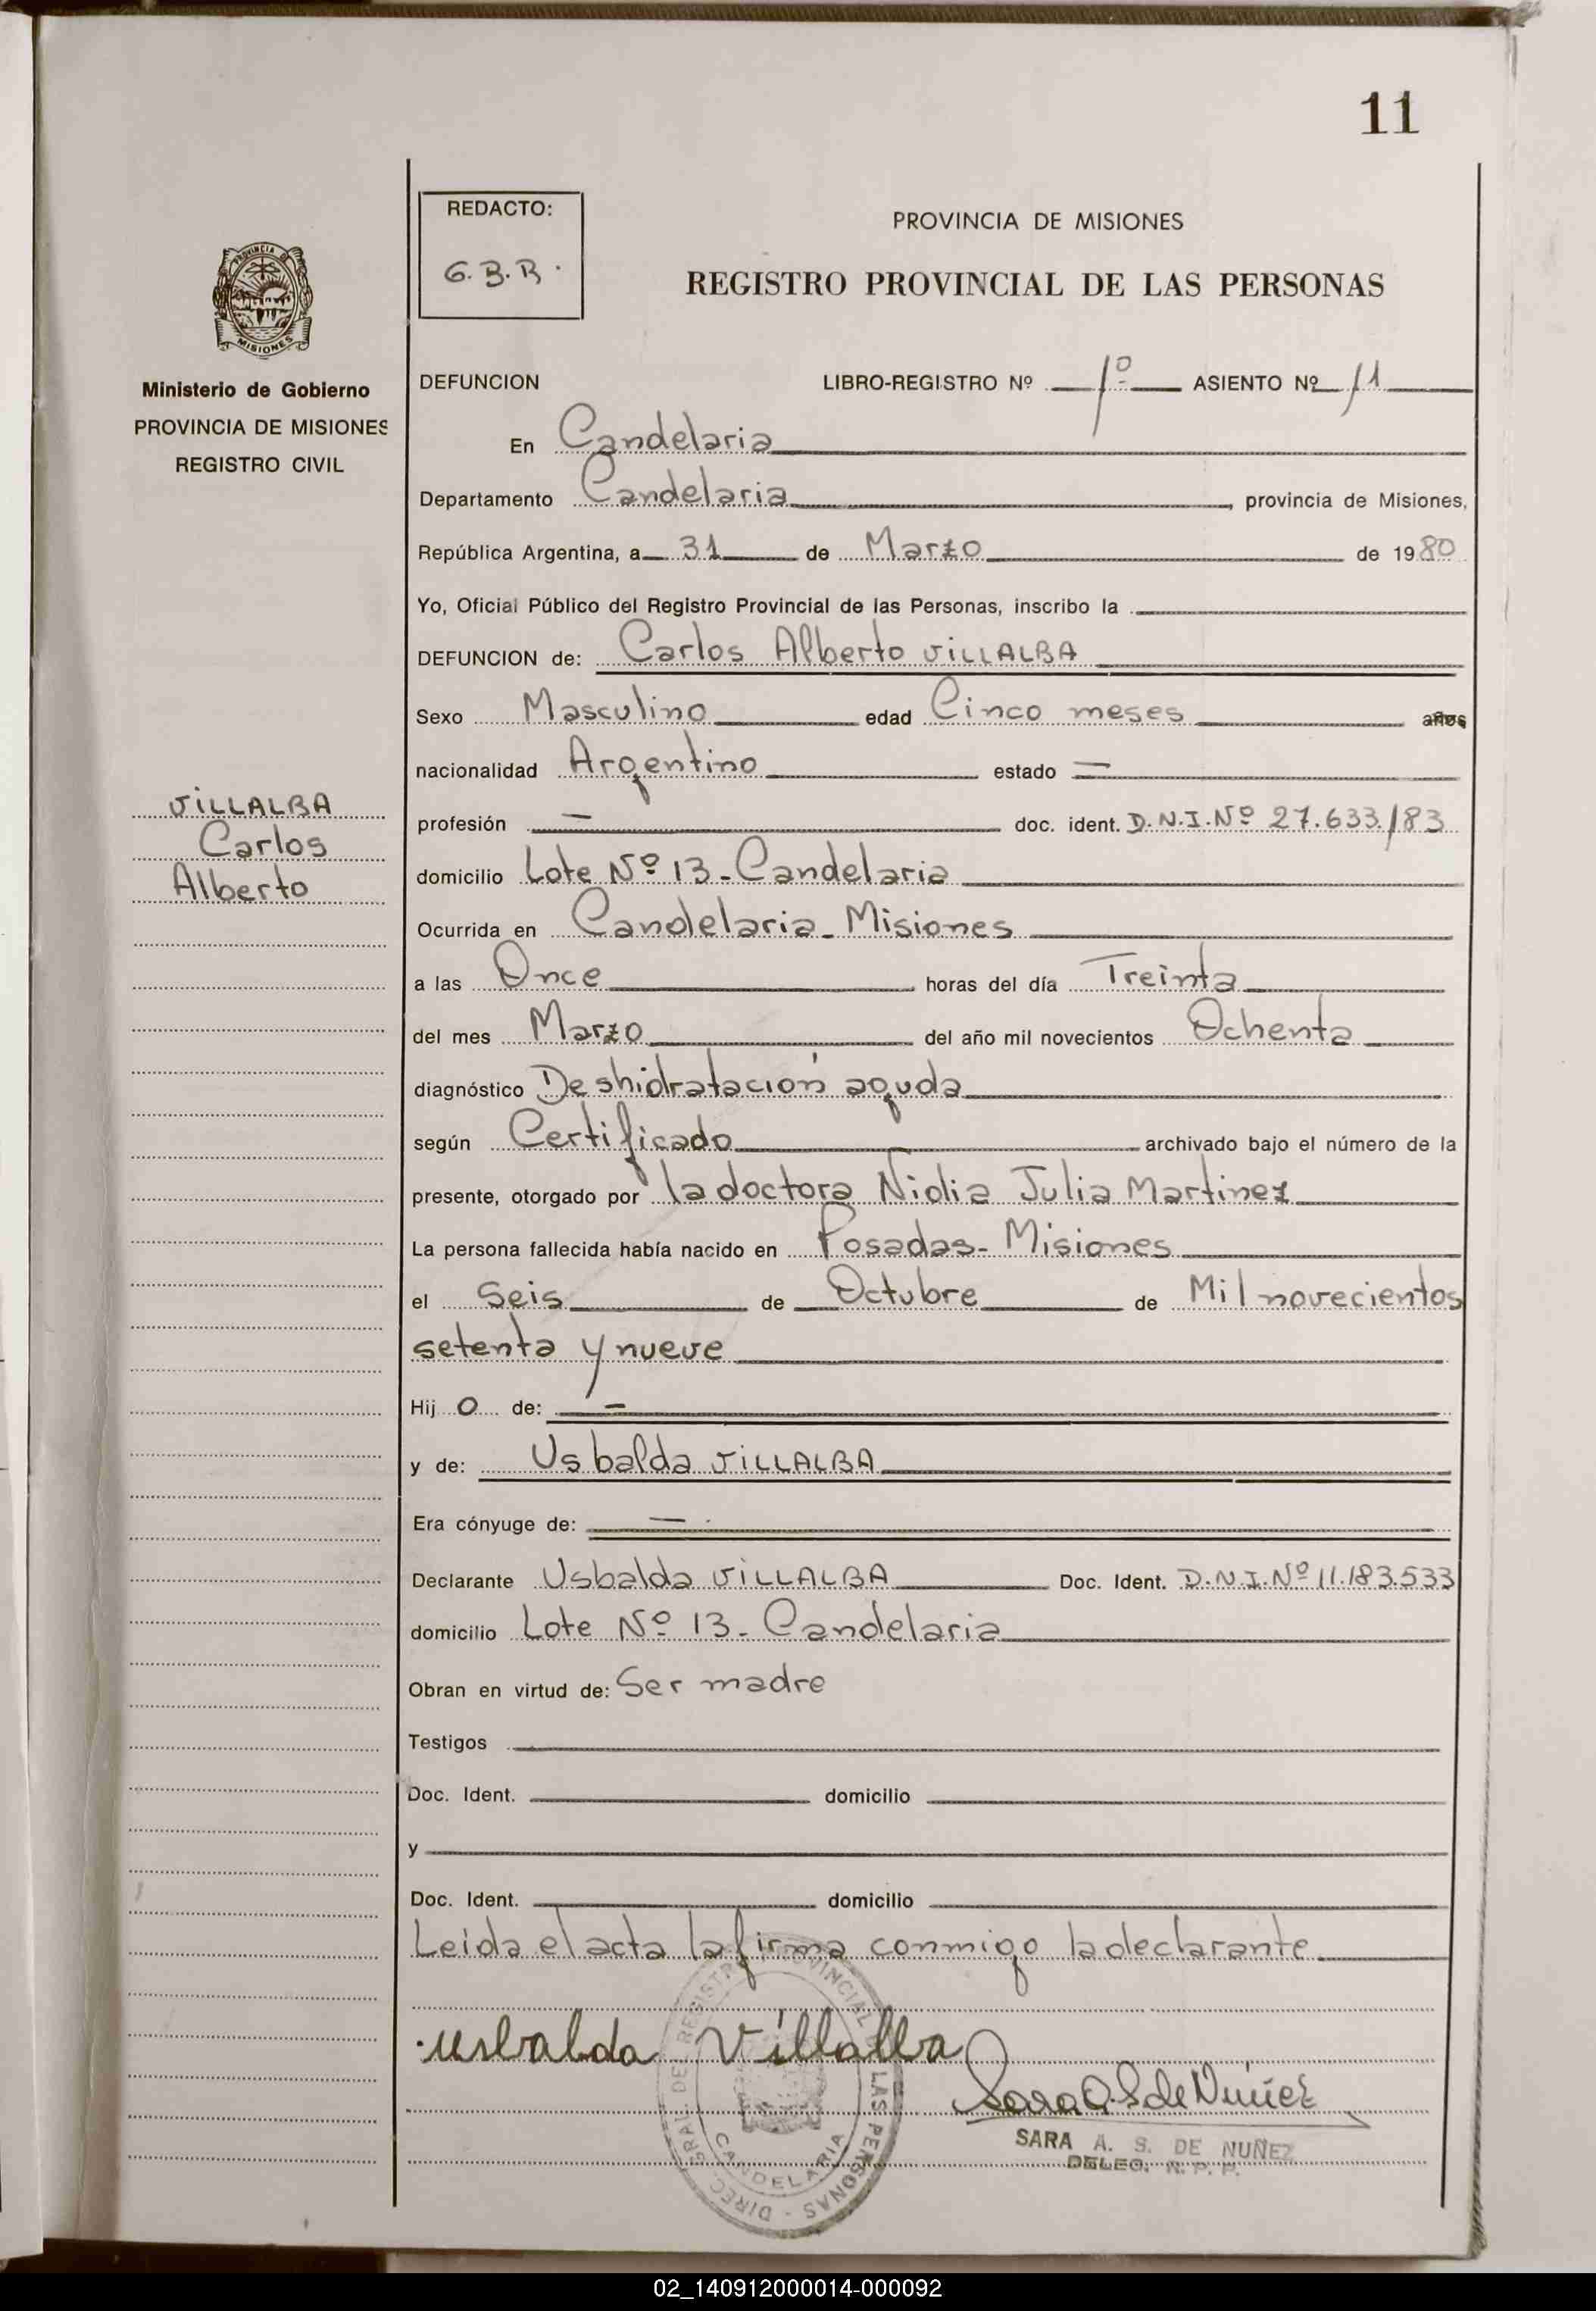 11
REDACTO:
G.B.R.
PROVINCIA DE MISIONES
REGISTRO PROVINCIAL DE LAS PERSONAS
PROVINCIA DE
MISIONES
Ministerio de Gobierno
PROVINCIA DE MISIONES
REGISTRO CIVIL
DEFUNCION LIBRO-REGISTRO Nº 1º ASIENTO Nº 11
En Candelaria
Departamento Candelaria, provincia de Misiones,
República Argentina, a 31 de Marzo de 1980
Yo, Oficial Público del Registro Provincial de las Personas, inscribo la
DEFUNCION de: Carlos Alberto VILLALBA
Sexo Masculino edad Cinco meses años
nacionalidad Argentino estado —
VILLALBA
Carlos
Alberto
profesión — doc. ident. D.N.I. Nº 27.633.183
domicilio Lote Nº 13 - Candelaria
Ocurrida en Candelaria - Misiones
a las Once horas del día Treinta
del mes Marzo del año mil novecientos Ochenta
diagnóstico Deshidratación aguda
según Certificado archivado bajo el número de la
presente, otorgado por la doctora Nidia Julia Martinez
La persona fallecida había nacido en Posadas - Misiones
el Seis de Octubre de Mil novecientos
setenta y nueve
Hijo de: —
y de: Usbalda VILLALBA
Era cónyuge de: —
Declarante Usbalda VILLALBA Doc. Ident. D.N.I. Nº 11.183.533
domicilio Lote Nº 13 - Candelaria
Obran en virtud de: Ser madre
Testigos
Doc. Ident. domicilio
y
Doc. Ident. domicilio
Leida el acta la firma conmigo la declarante
usbalda Villalba
Sara A. S. de Nuñez
SARA A. S. DE NUÑEZ
DELEG. R. P. P.
DIREC. GRAL. DEL REGISTRO PROVINCIAL DE LAS PERSONAS -
CANDELARIA
02_140912000014-000092